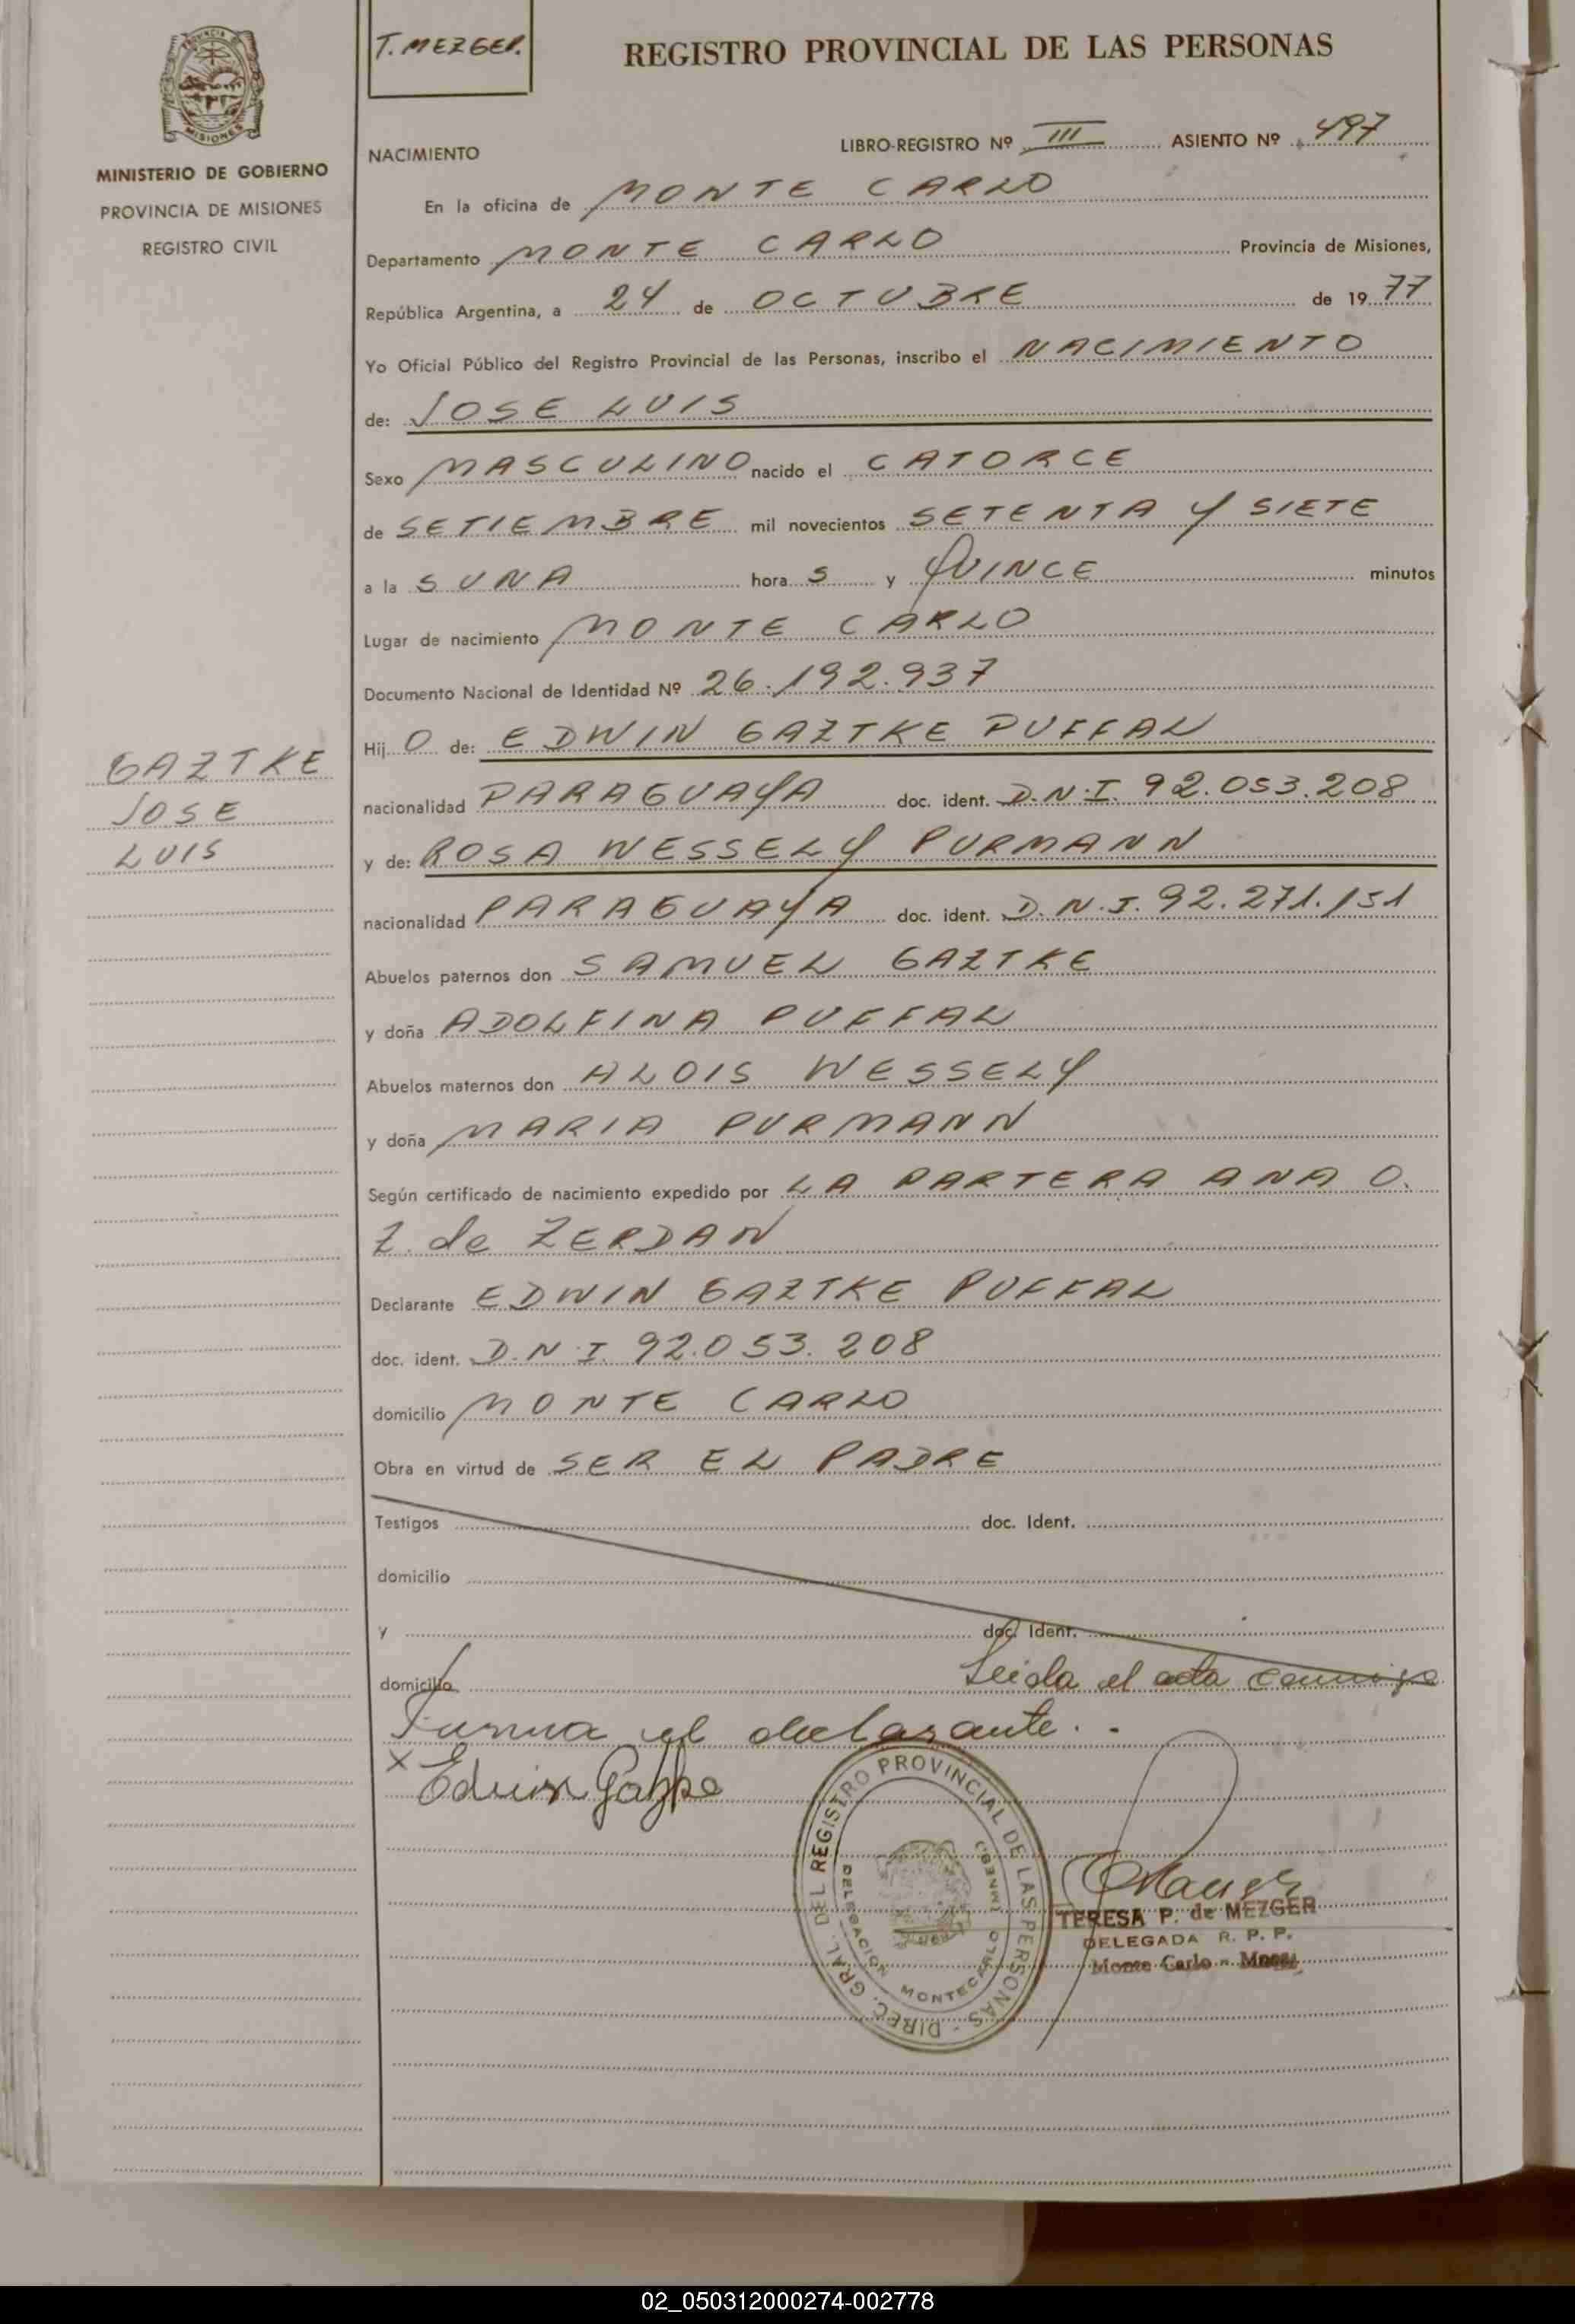 T. MEZGER.
REGISTRO PROVINCIAL DE LAS PERSONAS
PROVINCIA DE
MISIONES
MINISTERIO DE GOBIERNO
PROVINCIA DE MISIONES
REGISTRO CIVIL
NACIMIENTO
LIBRO-REGISTRO Nº III ASIENTO Nº 497
En la oficina de MONTE CARLO
Departamento MONTE CARLO Provincia de Misiones,
República Argentina, a 24 de OCTUBRE de 1977
Yo Oficial Público del Registro Provincial de las Personas, inscribo el NACIMIENTO
de: JOSE LUIS
Sexo MASCULINO nacido el CATORCE
de SETIEMBRE mil novecientos SETENTA Y SIETE
a la S UNA hora S y QUINCE minutos
Lugar de nacimiento MONTE CARLO
Documento Nacional de Identidad Nº 26.192.937
Hij O de: EDWIN GAZTKE PUFFAL
GAZTKE
JOSE
LUIS
nacionalidad PARAGUAYA doc. ident. D.N.I. 92.053.208
y de: ROSA WESSELY PURMANN
nacionalidad PARAGUAYA doc. ident. D.N.I. 92.271.151
Abuelos paternos don SAMUEL GAZTKE
y doña ADOLFINA PUFFAL
Abuelos maternos don ALOIS WESSELY
y doña MARIA PURMANN
Según certificado de nacimiento expedido por LA PARTERA ANA O.
Z. de ZERDAN
Declarante EDWIN GAZTKE PUFFAL
doc. ident. D.N.I. 92.053.208
domicilio MONTE CARLO
Obra en virtud de SER EL PADRE
Testigos doc. Ident.
domicilio
y doc. Ident.
domicilio Leida el acta conmigo
Firma el declarante.
x Edwin Gaztke
DIREC. GRAL. DEL REGISTRO PROVINCIAL DE LAS PERSONAS -
DELEGACION MONTECARLO
TERESA P. de MEZGER
DELEGADA R. P. P.
Monte Carlo - Mnes.
02_050312000274-002778